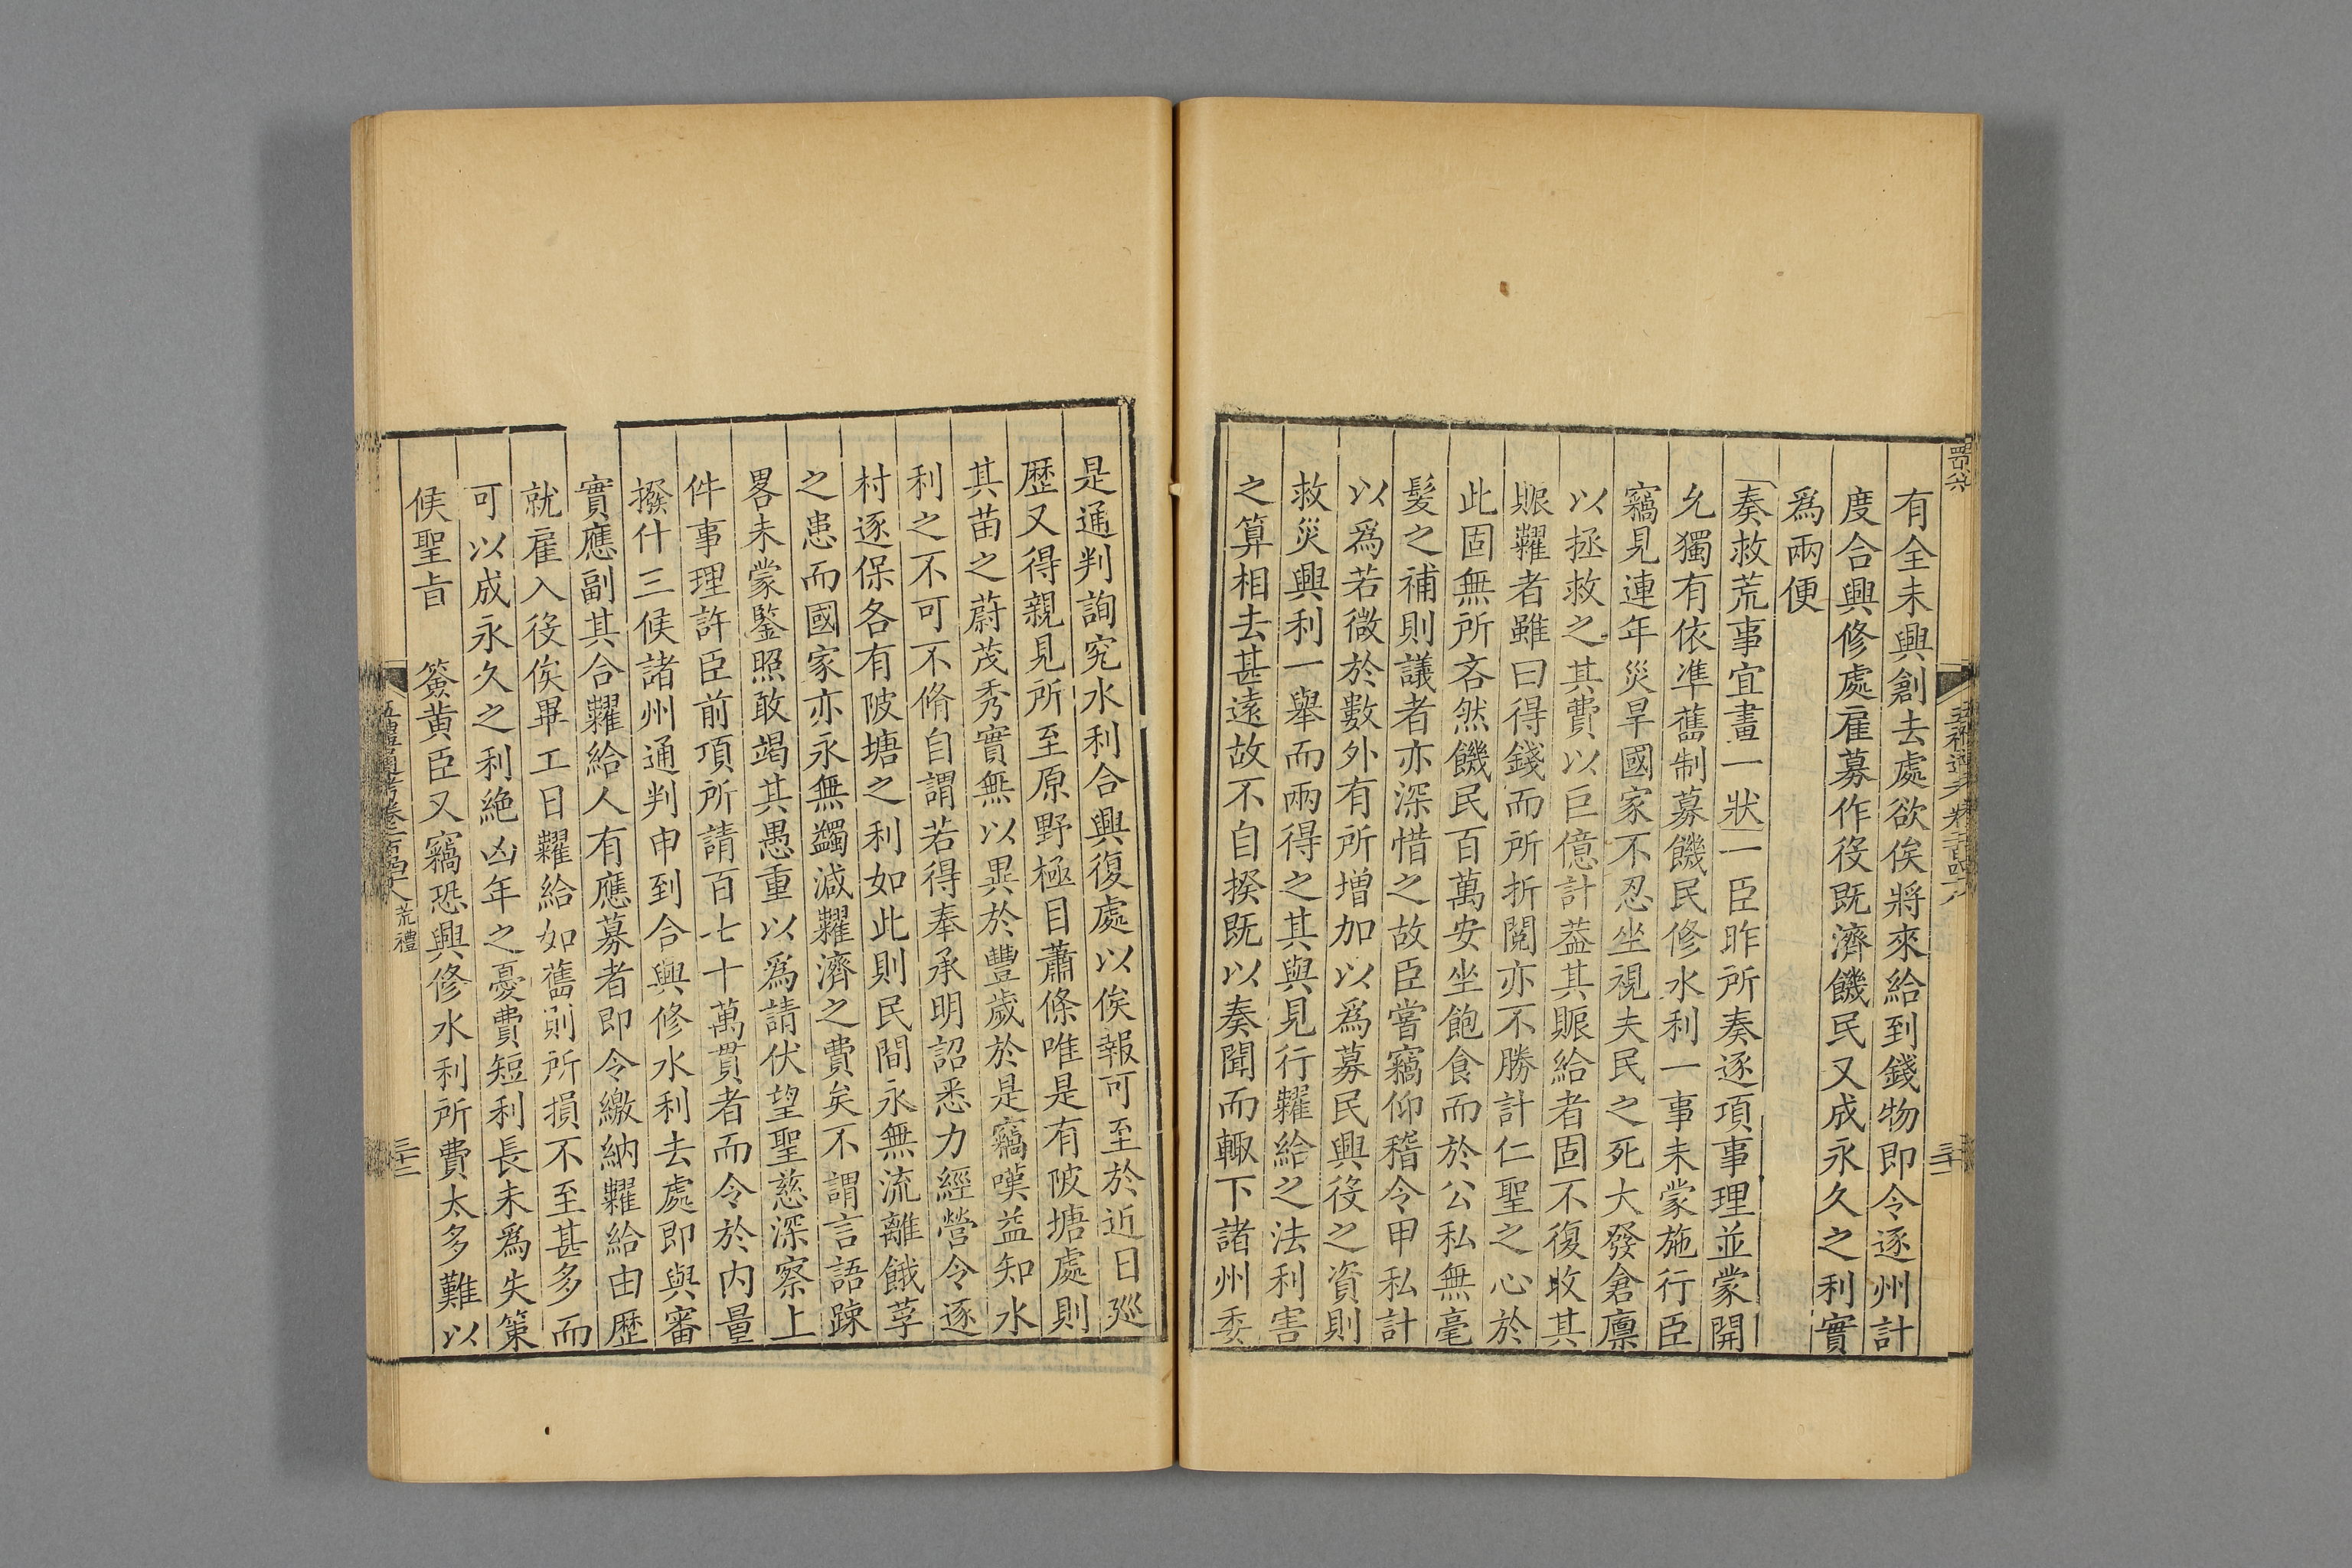 有全未興創去處欲俟將來給到錢物即令逐州計
度合興修處雇募作役既濟饑民又成永久之利實
爲兩便
奏救荒事宜畫一狀一臣昨所奏逐項事理並蒙開
允獨有依準舊制募饑民修水利一事未蒙施行臣
竊見連年災旱國家不忍坐視夫民之死大發倉廪
以拯救之其費以巨億計葢其賑給者固不復收其
賑糶者雖曰得錢而所折閱亦不勝計仁聖之心於
此固無所吝然饑民百萬安坐飽食而於公私無毫
髮之補則議者亦深惜之故臣嘗竊仰稽令甲私計
以爲若微於數外有所増加以爲募民興役之資則
救災興利一舉而兩得之其與見行糶給之法利害
之算相去甚遠故不自揆既以奏聞而輙下諸州委
是通判詢究水利合興復處以俟報可至於近日廵
歴又得親見所至原野極目蕭條唯是有陂塘處則
其苗之蔚茂秀實無以異於豐歲於是竊嘆益知水
利之不可不脩自謂若得奉承明詔悉力經營令逐
村逐保各有陂塘之利如此則民間永無流離餓莩
之患而國家亦永無蠲減糶濟之費矣不謂言語踈
畧未蒙鑒照敢竭其愚重以爲請伏望聖慈深察上
件事理許臣前項所請百七十萬貫者而令於内量
撥什三候諸州通判申到合興修水利去處即與審
實應副其合糶給人有應募者即令繳納糶給由歴
就雇入役俟畢工日糶給如舊則所損不至甚多而
可以成永久之利絶凶年之憂費短利長未爲失策
候聖旨　簽黄臣又竊恐興修水利所費太多難以
五禮通考卷二百四十八　荒禮